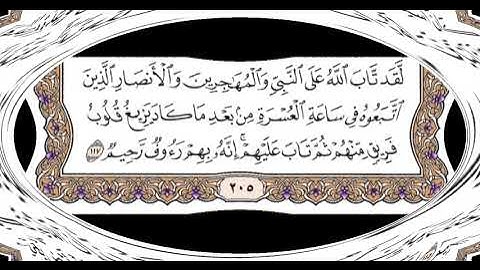 لَّقَد تَّابَ اللَّهُ عَلَى النَّبِيِّ وَالْمُهَاجِرِينَ وَالْأَنصَارِ الَّذِينَ
اتَّبَعُوهُ فِي سَاعَةِ الْعُسْرَةِ مِنۢ بَعْدِ مَا كَادَ يَزِيغُ قُلُوبُ
فَرِيقٍ مِّنْهُمْ ثُمَّ تَابَ عَلَيْهِمْ ۚ إِنَّهُ بِهِمْ رَءُوفٌ رَّحِيمٌ ١١٧
٢٠٥